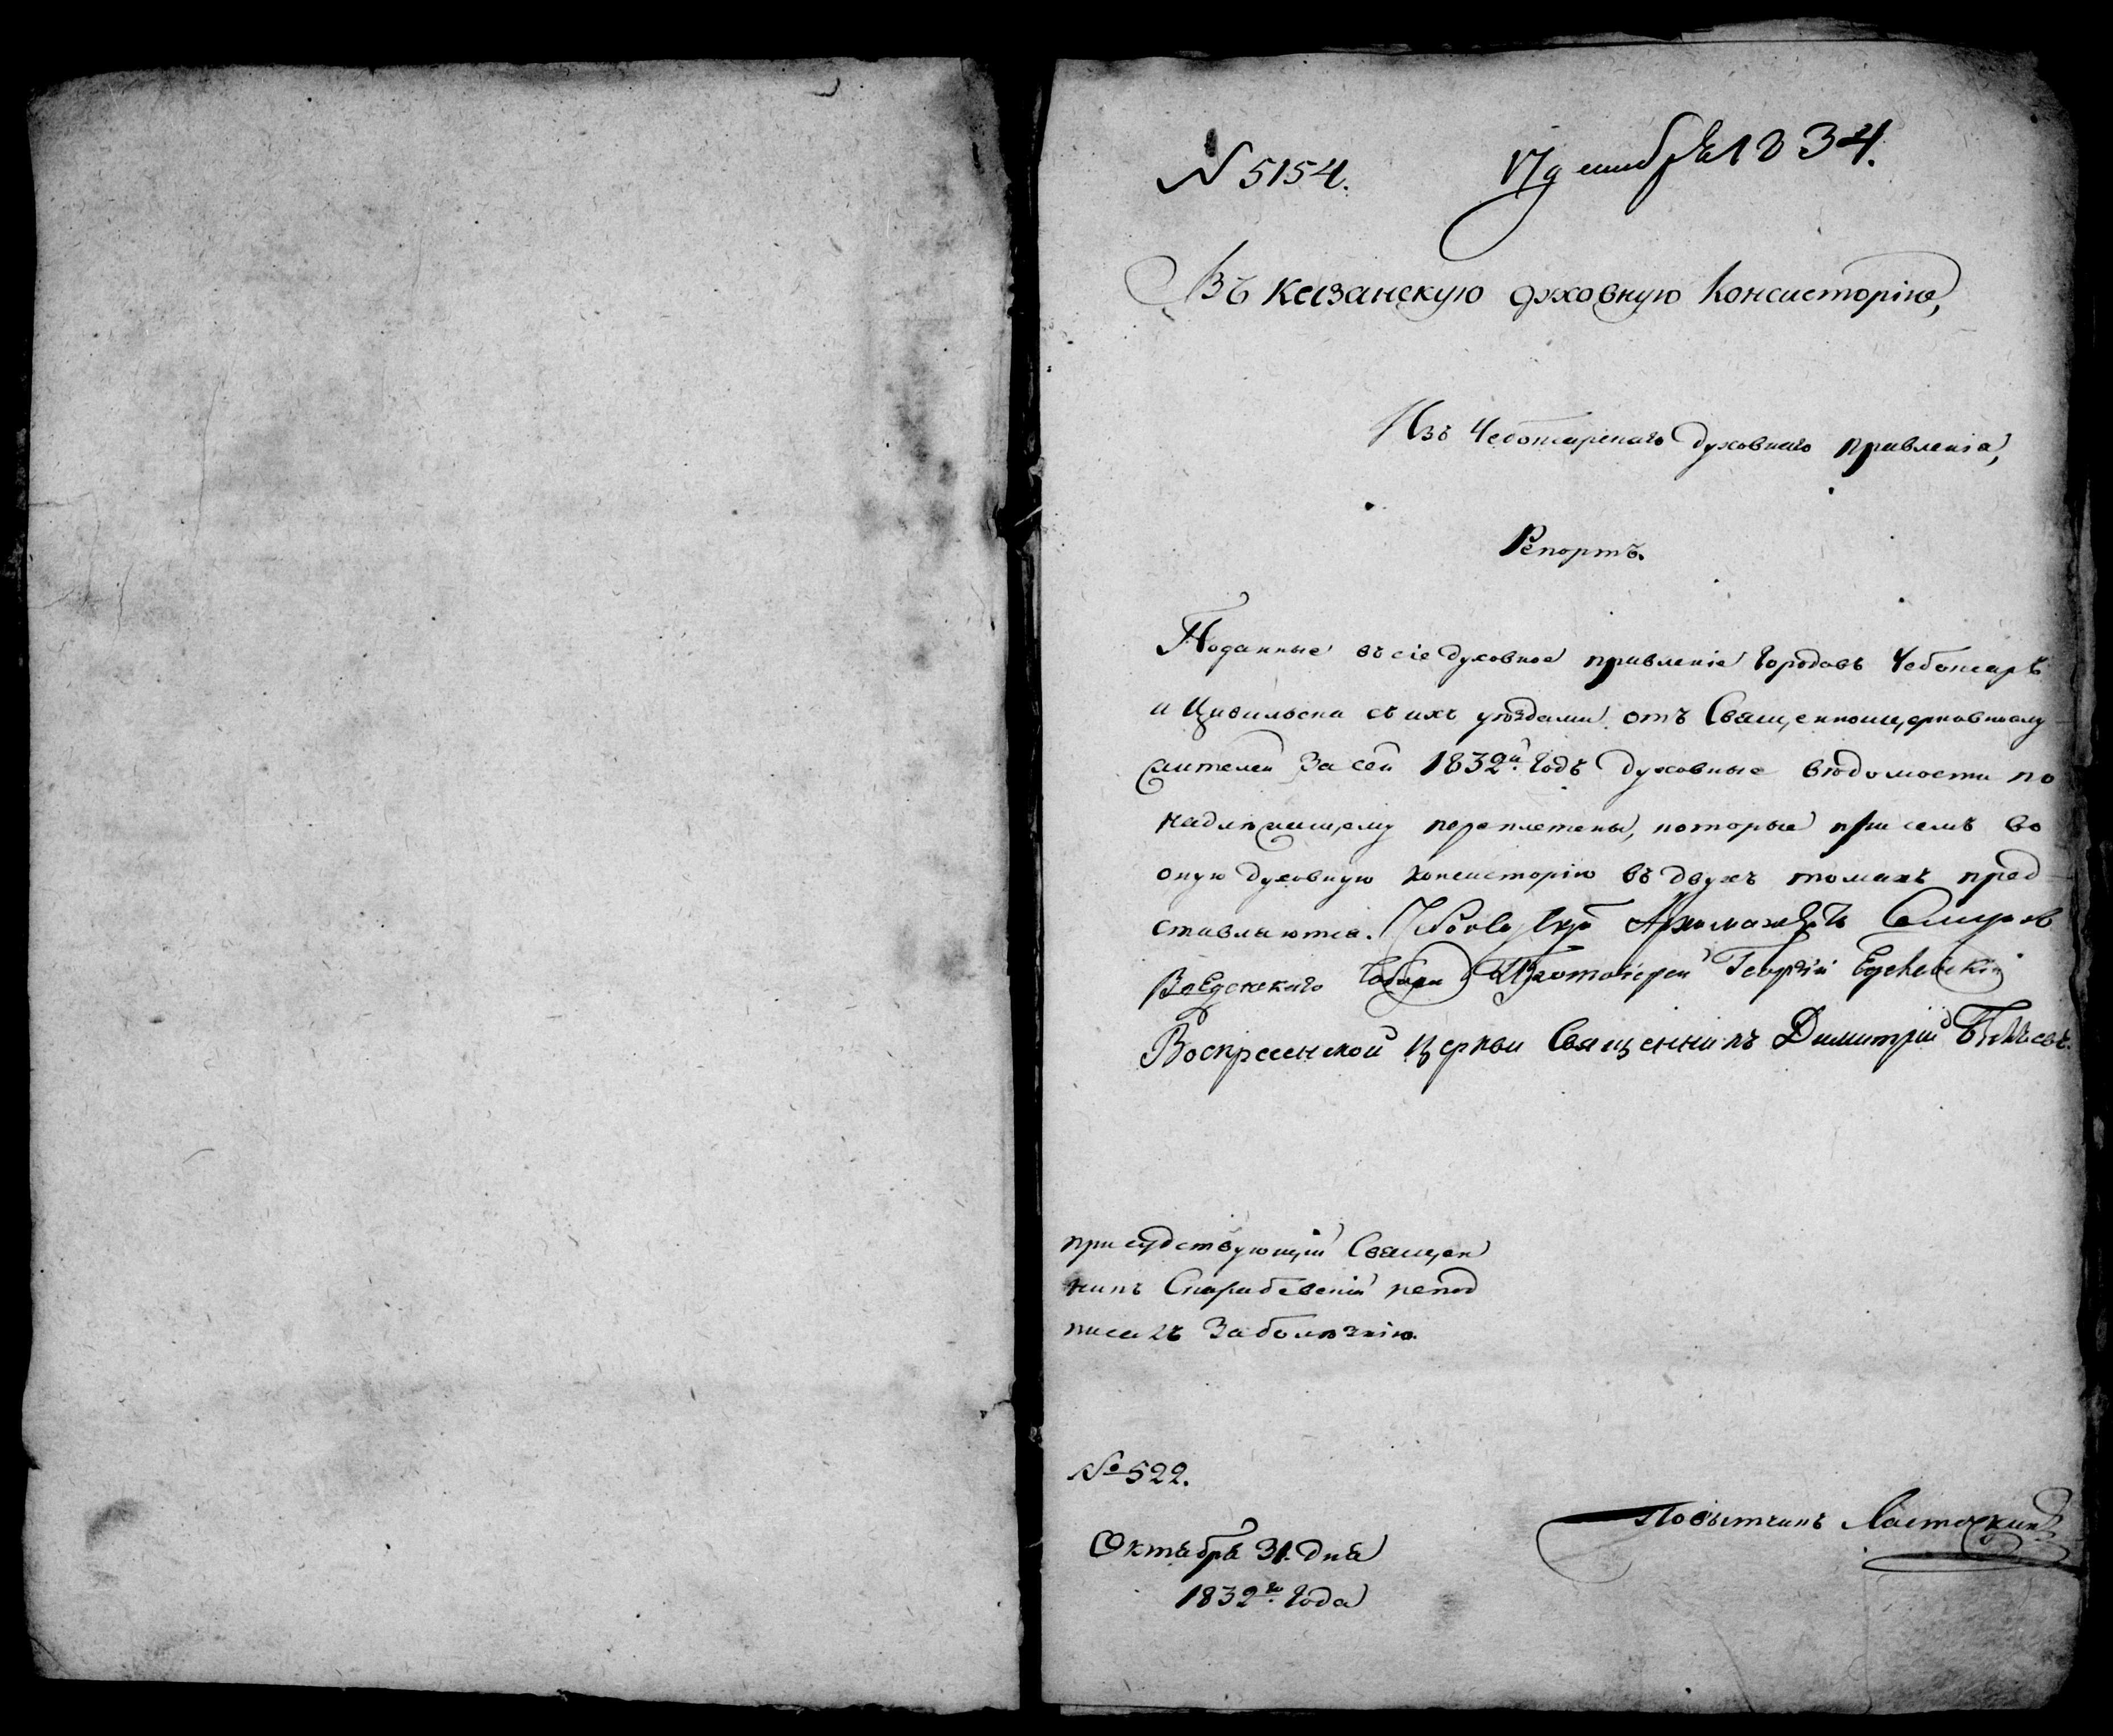 N 5154. 17 декабря 1834.
Въ Казанскую духовную Консисторію,
Изъ Чебоксарскаго духовнаго правленія,
Репортъ.
Поданные въ сіе духовное правленіе городовъ Чебоксаръ
и Цивильска съ ихъ уѣздами отъ Священноцерковнослу-
жителей за сей 1832й годъ духовныя вѣдомости по
надлежащему переплетены, которые при семъ во
оную духовную Консисторію въ двухъ томахъ пред-
ставляются. Архимандритъ
Введенскаго Собора Протоіерей Георгій
Воскресенской церкви Священникъ Димитрій
присудствующій Священ
никъ непод
писалъ за болѣзнію.
№ 522.
Октября 31. дня
1832го года
Повытчикъ Ласточкинъ